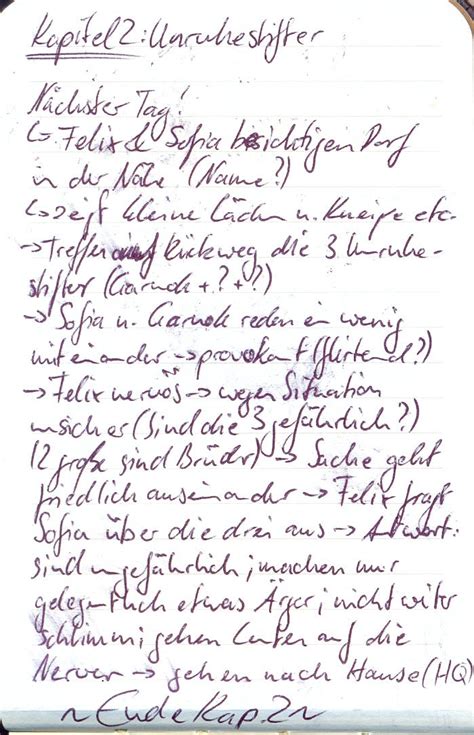 Kapitel 2: Unruhestifter
Nächster Tag!
↳ Felix & Sofia besichtigen Dorf
in der Nähe (Name?)
↳ zeigt kleine Läden u. Kneipe etc.
→ Treffen auf Rückweg die 3 Unruhe-
stifter (Garnok + ? + ?)
→ Sofia u. Garnok reden ein wenig
miteinander → provokant (flirtend?)
→ Felix nervös → wegen Situation
unsicher (sind die 3 gefährlich?)
(2 große sind Brüder) → Sache geht
friedlich auseinander → Felix fragt
Sofia über die drei aus → Antwort:
sind ungefährlich; machen nur
gelegentlich etwas Ärger; nicht weiter
schlimm; gehen Leuten auf die
Nerven → gehen nach Hause (HQ)
~ Ende Kap. 2 ~